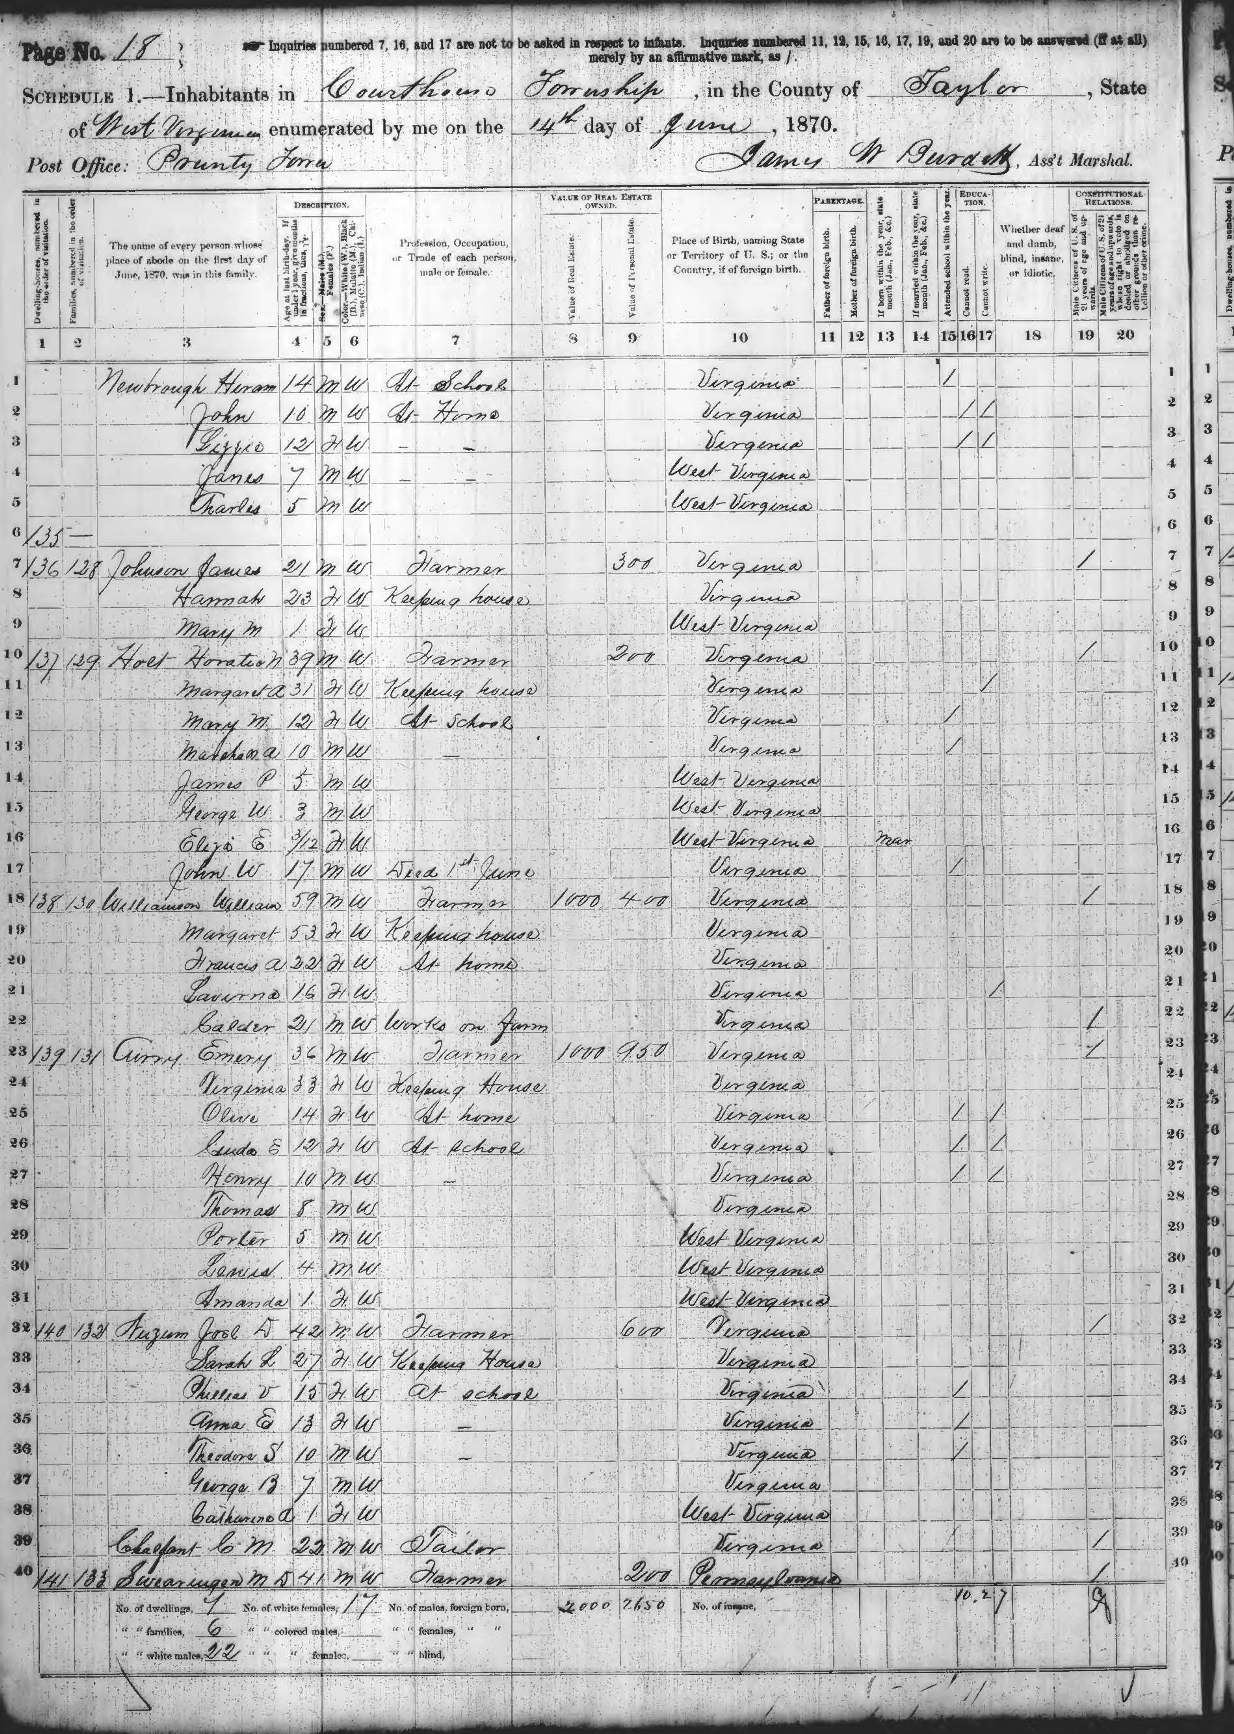 Page No. 18
☞ Inquiries numbered 7, 16, and 17 are not to be asked in respect to infants. Inquiries numbered 11, 12, 15, 16, 17, 19, and 20 are to be answered (if at all)
merely by an affirmative mark, as /.
SCHEDULE 1.—Inhabitants in Courthouse Township, in the County of Taylor, State
of West Virginia enumerated by me on the 14th day of June, 1870.
Post Office: Prunty Town James W Burdett, Ass't Marshal.
DESCRIPTION. VALUE OF REAL ESTATE OWNED. PARENTAGE. EDUCATION. CONSTITUTIONAL RELATIONS.
Dwelling-houses, numbered in the order of visitation.
Families, numbered in the order of visitation.
The name of every person whose place of abode on the first day of June, 1870, was in this family.
Age at last birth-day. If under 1 year, give months in fractions, thus, 3/12
Sex.—Males (M.), Females (F.)
Color.—White (W.), Black (B.), Mulatto (M.), Chinese (C.), Indian (I.)
Profession, Occupation, or Trade of each person, male or female.
Value of Real Estate.
Value of Personal Estate.
Place of Birth, naming State or Territory of U. S.; or the Country, if of foreign birth.
Father of foreign birth.
Mother of foreign birth.
If born within the year, state month (Jan., Feb., &c.)
If married within the year, state month (Jan., Feb., &c.)
Attended school within the year.
Cannot read.
Cannot write.
Whether deaf and dumb, blind, insane, or idiotic.
Male Citizens of U. S. of 21 years of age and upwards.
Male Citizens of U. S. of 21 years of age and upwards, whose right to vote is denied or abridged on other grounds than rebellion or other crime.
1 2 3 4 5 6 7 8 9 10 11 12 13 14 15 16 17 18 19 20
1 Newbrough Hiram 14 M W At School Virginia / 1
2 John 10 M W At Home Virginia / / 2
3 Lizzie 12 F W – – Virginia / / 3
4 James 7 M W – – West Virginia 4
5 Charles 5 M W West Virginia 5
6 135 — 6
7 136 128 Johnson James 21 M W Farmer 300 Virginia / 7
8 Hannah 23 F W Keeping house Virginia 8
9 Mary M 1 F W West Virginia 9
10 137 129 Holt Horatio N 39 M W Farmer 200 Virginia / 10
11 Margaret A 31 F W Keeping house Virginia / 11
12 Mary M 12 F W At School Virginia / 12
13 Marshall A 10 M W – Virginia / 13
14 James P 5 M W West Virginia 14
15 George W 3 M W West Virginia 15
16 Eliza E 3/12 F W West Virginia Mar 16
17 John W 17 M W Died 1st June Virginia / 17
18 138 130 Williamson William 59 M W Farmer 1000 400 Virginia / 18
19 Margaret 53 F W Keeping house Virginia 19
20 Francis A 22 F W At home Virginia 20
21 Laverna 16 F W Virginia / 21
22 Calder 21 M W Works on Farm Virginia / 22
23 139 131 Curry Emery 36 M W Farmer 1000 950 Virginia / 23
24 Virginia 33 F W Keeping House Virginia 24
25 Olive 14 F W At home Virginia / / 25
26 E 12 F W At school Virginia / / 26
27 Henry 10 M W – Virginia / / 27
28 Thomas 8 M W Virginia 28
29 Porter 5 M W West Virginia 29
30 Lewis 4 M W West Virginia 30
31 Amanda 1 F W West Virginia 31
32 140 132 Nuzum Joel D 42 M W Farmer 600 Virginia / 32
33 Sarah L 27 F W Keeping House Virginia 33
34 V 15 F W At school Virginia / 34
35 Anna E 13 F W – Virginia / 35
36 Theodore S 10 M W – Virginia / 36
37 George B 7 M W Virginia 37
38 Catharine A 1 F W West Virginia 38
39 Chalfant C M 22 M W Tailor Virginia / 39
40 141 133 Swearingen M D 41 M W Farmer 200 Pennsylvania / 39
No. of dwellings, 7 No. of white females, 17 No. of males, foreign born, 2000 2650 No. of insane, 10. 2 7 9
" " families, 6 " " colored males, " " females, " "
" " white males, 22 " " " females, " " blind,